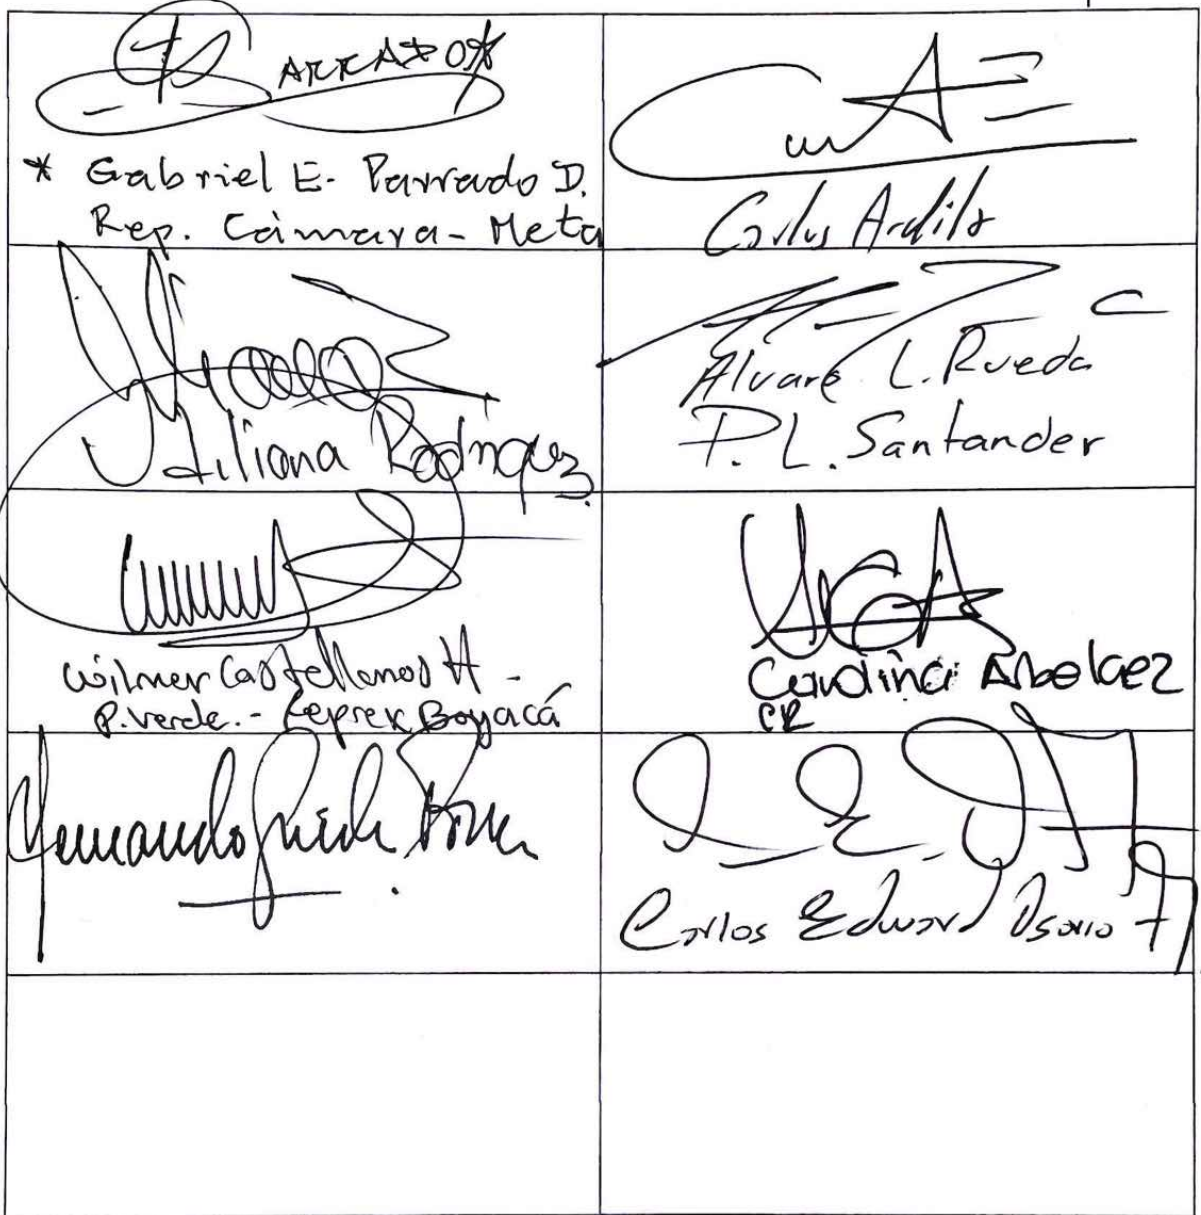 PARRADO
* Gabriel E. Parrado D.
Rep. Cámara - Meta
Carlos Ardila
Liliana Rodríguez
Alvaro L. Rueda
P.L. Santander
Wilmer Castellanos H -
P. Verde. - Boyacá
Carolina Arbelaez
CR
Carlos Edward Osorio